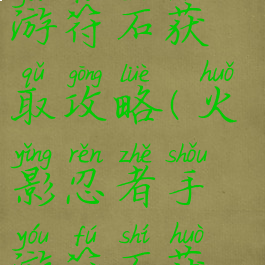 游符石获
qǔ gōng lüè huǒ
取攻略(火
yǐng rěn zhě shǒu
影忍者手
yóu fú shí huò
游符石获